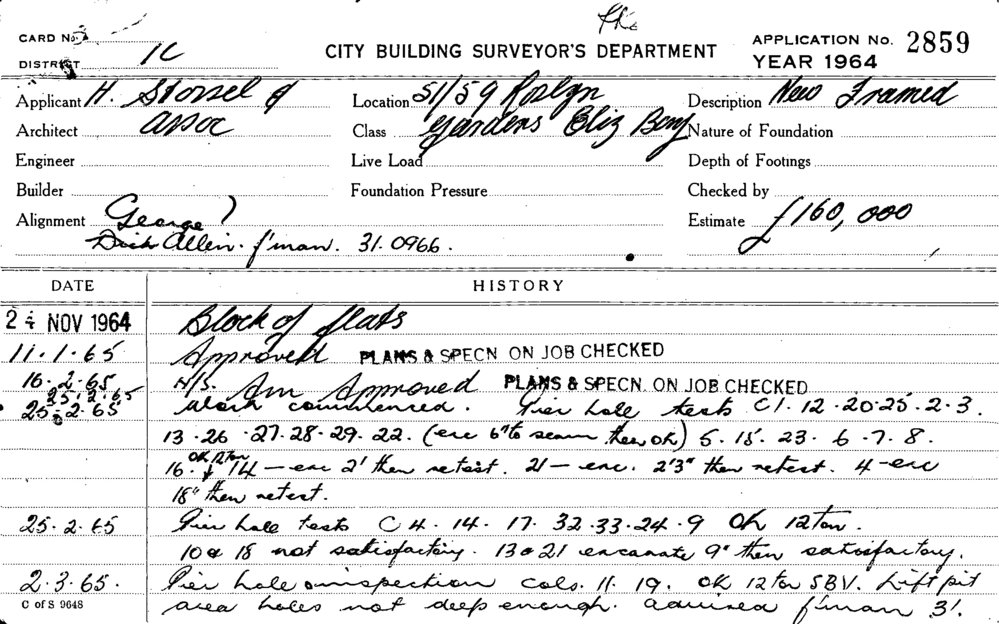 CARD No.
DISTRICT 1C
CITY BUILDING SURVEYOR'S DEPARTMENT
APPLICATION No. 2859
YEAR 1964
Applicant H. Stossel &
Architect assoc
Engineer
Builder
Alignment George
Dick Allen. f'man. 31.0966.
Location 51/59 Roslyn
Class Gardens Eliz Bay
Live Load
Foundation Pressure
Description New Framed
Nature of Foundation
Depth of Footings
Checked by
Estimate £160,000
DATE HISTORY
24 NOV 1964 Block of flats
11.1.65 Approved PLANS & SPECN ON JOB CHECKED
16.2.65 H/S. Am Approved PLANS & SPECN. ON JOB CHECKED
25.2.65
25.2.65 Work commenced. Pier hole tests C1.12.20.25.2.3.
13.26.27.28.29.22. (exc 6" to seam then OK) 5.15.23.6.7.8.
OK 12 ton
16. 14 — exc 2' then retest. 21 — exc. 2'3" then retest. 4 - exc
18" then retest.
25.2.65 Pier hole tests C4.14.17.32.33.24.9 OK 12 ton.
10 & 18 not satisfactory. 13 & 21 excavate 9" then satisfactory.
2.3.65. Pier hole inspection cols. 11.19. OK 12 ton SBV. Lift pit
area holes not deep enough. advised f'man 3'.
C of S 9648